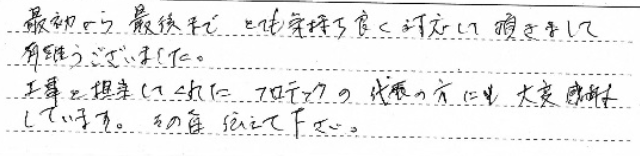 最初から最後まで とても気持ち良く対応して頂きまして
有難うございました。
工事を担当してくれた フロテックの代表の方にも 大変感謝
しています。その旨伝えて下さい。